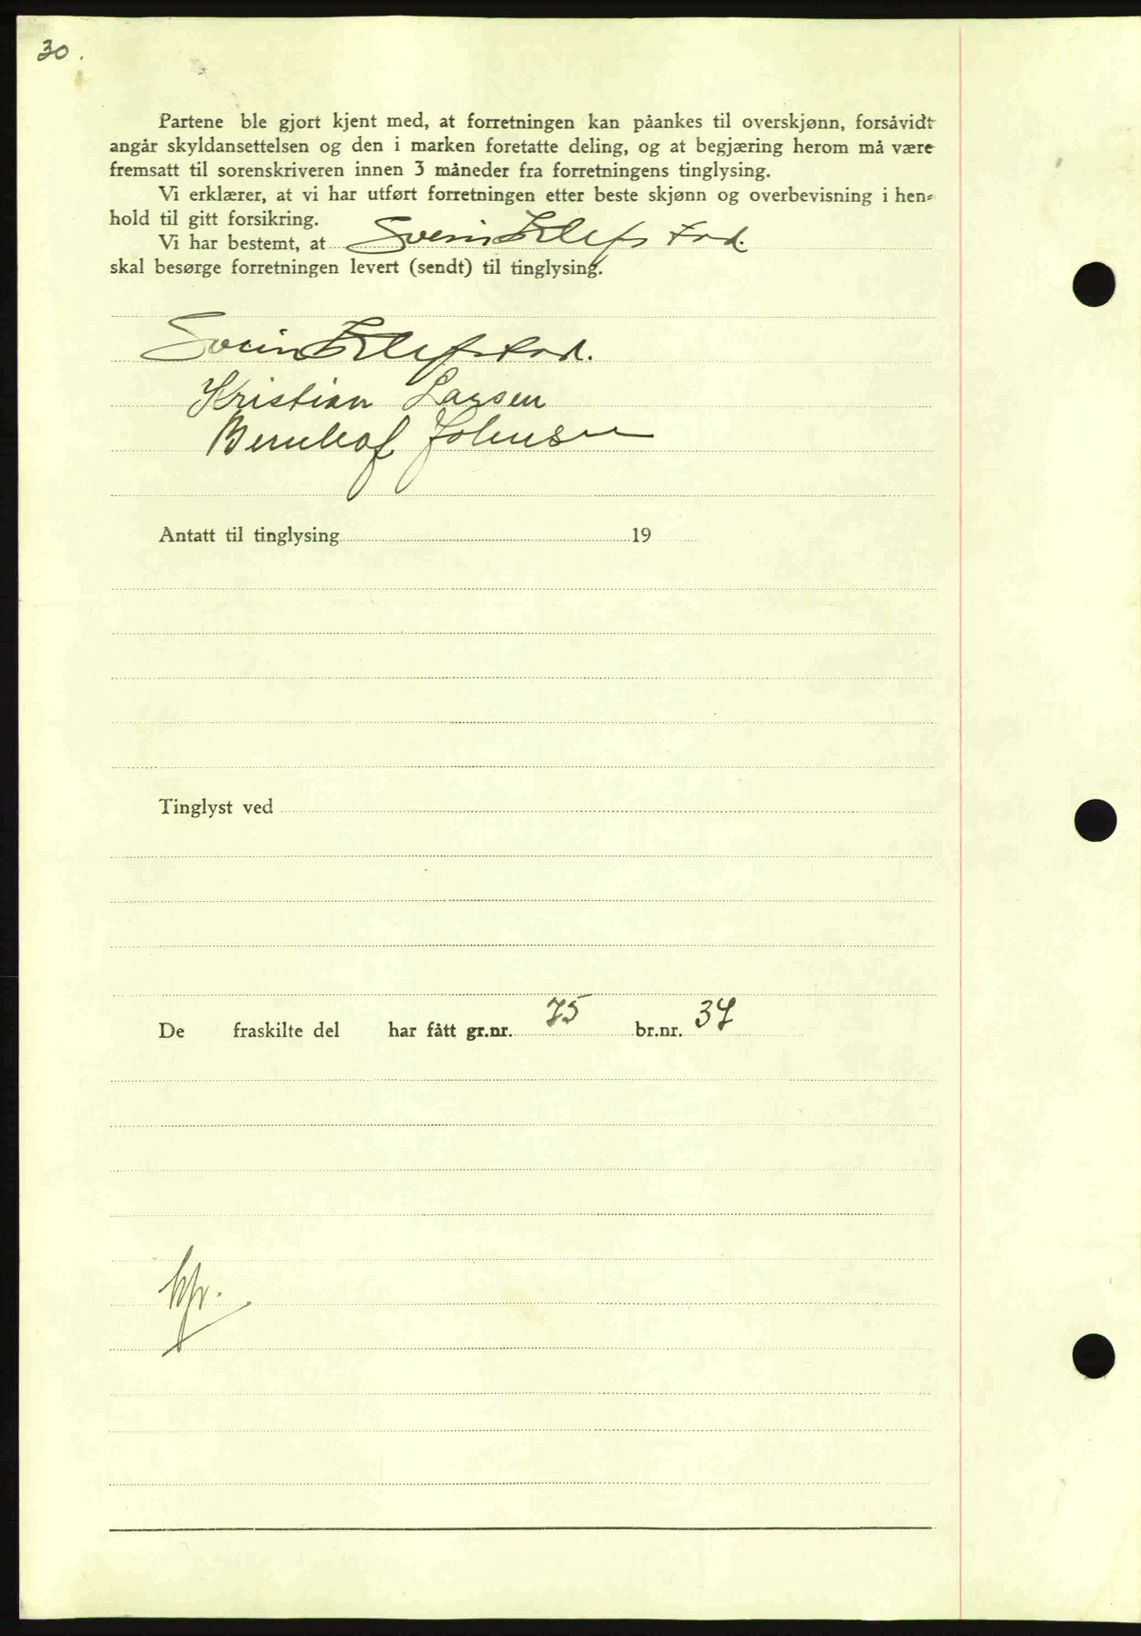 30.
Partene ble gjort kjent med, at forretningen kan påankes til overskjønn, forsåvidt
angår skyldansettelsen og den i marken foretatte deling, og at begjæring herom må være
fremsatt til sorenskriveren innen 3 måneder fra forretningens tinglysing.
Vi erklærer, at vi har utført forretningen etter beste skjønn og overbevisning i hen-
hold til gitt forsikring.
Vi har bestemt, at Svein
skal besørge forretningen levert (sendt) til tinglysing.
Svein
Kristian Larsen
Bernhof Johnsen
Antatt til tinglysing 19
Tinglyst ved
De fraskilte del har fått gr.nr. 75 br.nr. 37